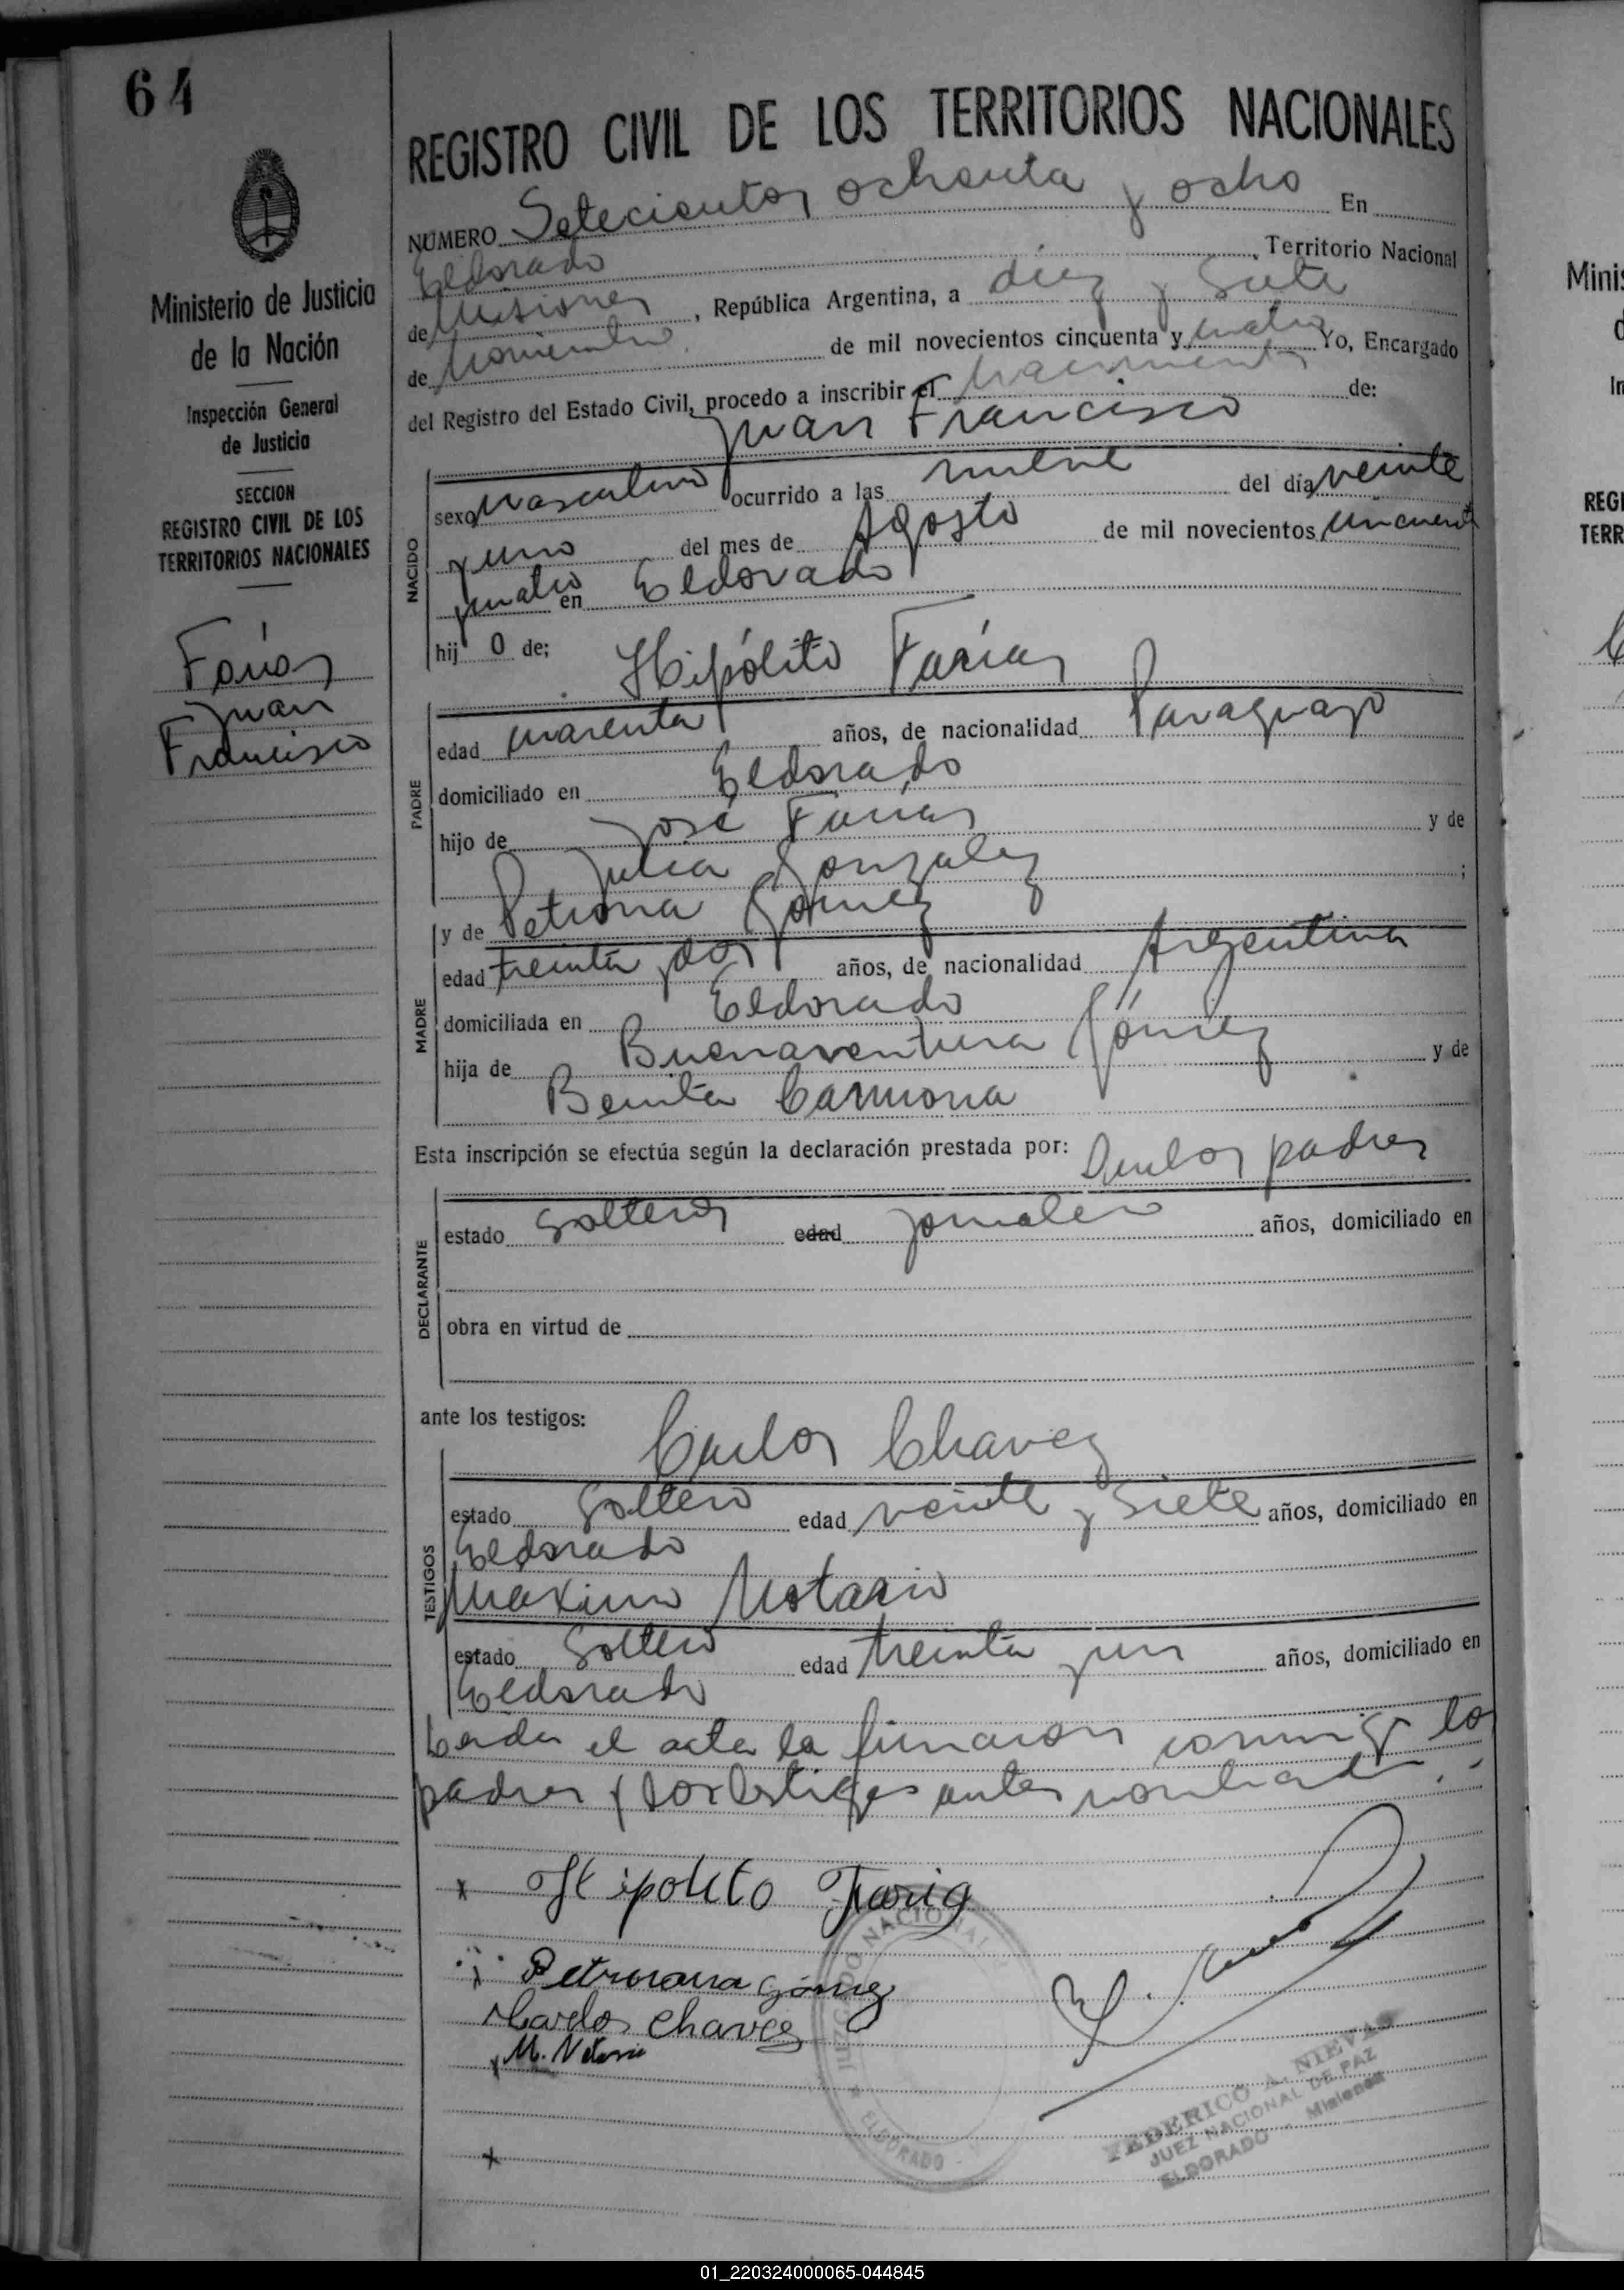 64
REGISTRO CIVIL DE LOS TERRITORIOS NACIONALES
Ministerio de Justicia
de la Nación
Inspección General
de Justicia
SECCION
REGISTRO CIVIL DE LOS
TERRITORIOS NACIONALES
Farías
Juan
Francisco
NÚMERO Setecientos ochenta y ocho En
Eldorado , Territorio Nacional
de Misiones , República Argentina, a diez y siete
de Noviembre de mil novecientos cincuenta y cuatro Yo, Encargado
del Registro del Estado Civil, procedo a inscribir el Nacimiento de:
Juan Francisco
NACIDO
sexo Masculino ocurrido a las nueve del día veinte
y uno del mes de Agosto de mil novecientos cincuenta
y cuatro en Eldorado
hij o de;
Hipólito Farías
PADRE
edad cuarenta años, de nacionalidad Paraguayo
domiciliado en Eldorado
hijo de José Farías y de
Julia Gonzalez ;
y de Petrona Gómez
MADRE
edad treinta y dos años, de nacionalidad Argentina
domiciliada en Eldorado
hija de Buenaventura Gómez y de
Benita Carmona
Esta inscripción se efectúa según la declaración prestada por: Ambos padres
DECLARANTE
estado solteros edad jornalero años, domiciliado en
obra en virtud de
ante los testigos:
Carlos Chavez
TESTIGOS
estado soltero edad veinte y siete años, domiciliado en
Eldorado
Maximo Notario
estado soltero edad treinta y un años, domiciliado en
Eldorado
Leída el acta la firmaron conmigo los
padres y los testigos antes nombrados.-
x Hipolito Faria
Petronona Gómez
Carlos Chavez
M. Notario
x
JUZGADO NACIONAL
ELDORADO
FEDERICO A. NIEVAS
JUEZ NACIONAL DE PAZ
ELDORADO - Misiones
Minis
REGI
TERR
01_220324000065-044845